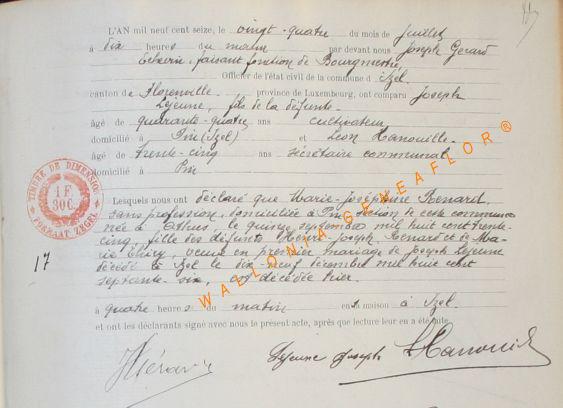 L'AN mil neuf cent seize, le vingt-quatre du mois de Juillet
à dix heures du matin par devant nous Joseph Gérard
faisant fonction de Bourgmestre,
Officier de l'état civil de la commune d'Izel
canton de Florenville province de Luxembourg, ont comparu Joseph
Lejeune, fils de la défunte
âgé de quarante-quatre ans cultivateur,
domicilié à Pin (Izel) et Léon Hanouille
âgé de trente-cinq ans secrétaire communal
domicilié à Pin
Lesquels nous ont déclaré que Marie-Joséphine Renard,
sans profession, domiciliée à Pin section de cette commune
née à Athus le quinze septembre mil huit cent trente-
cinq, fille des défunts Henri-Joseph Renard et de Ma-
rie Thiry, veuve en premier mariage de Joseph Lejeune
décédé à Izel le dix-neuf décembre mil huit cent
septante-six, est décédée hier
à quatre heures du matin en sa maison à Izel
et ont les déclarants signé avec nous le présent acte, après que lecture leur en a été faite.
Lejeune Joseph LHanouille
17
TIMBRE DE DIMENSION
1 F
30C.
FORMAAT ZEGEL
WALLONIA GENEAFLOR ®